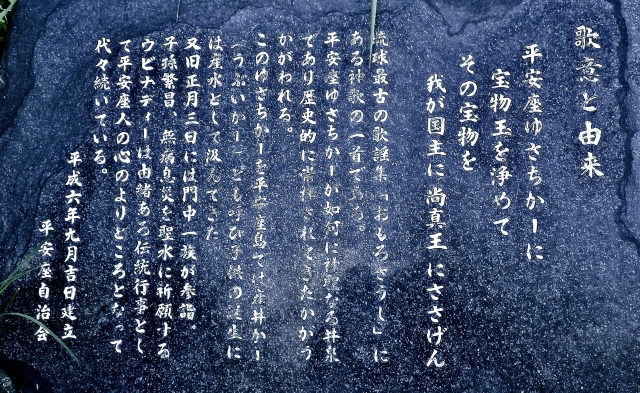 歌意と由来
平安座ゆさちかーに
宝物玉を浄めて
その宝物を
我が国主に尚真王にささけん
琉球最古の歌謡集「おもろさうし」に
ある神歌の一首である。
平安座ゆさちかーが如何に神聖なる井泉
であり歴史的に崇拝されてきたかがう
かがわれる。
このゆさちかーを平安座島では産井かー
(うぶいかー)とも呼び子供の誕生に
は産水として汲んできた
又旧正月三日には門中一族が参詣。
子孫繁昌、無病息災を聖水に祈願する
ウビナディーは由緒ある伝統行事とし
て平安座人の心のよりどころとなって
代々続いている。
平成六年九月吉日建立
平安座自治会